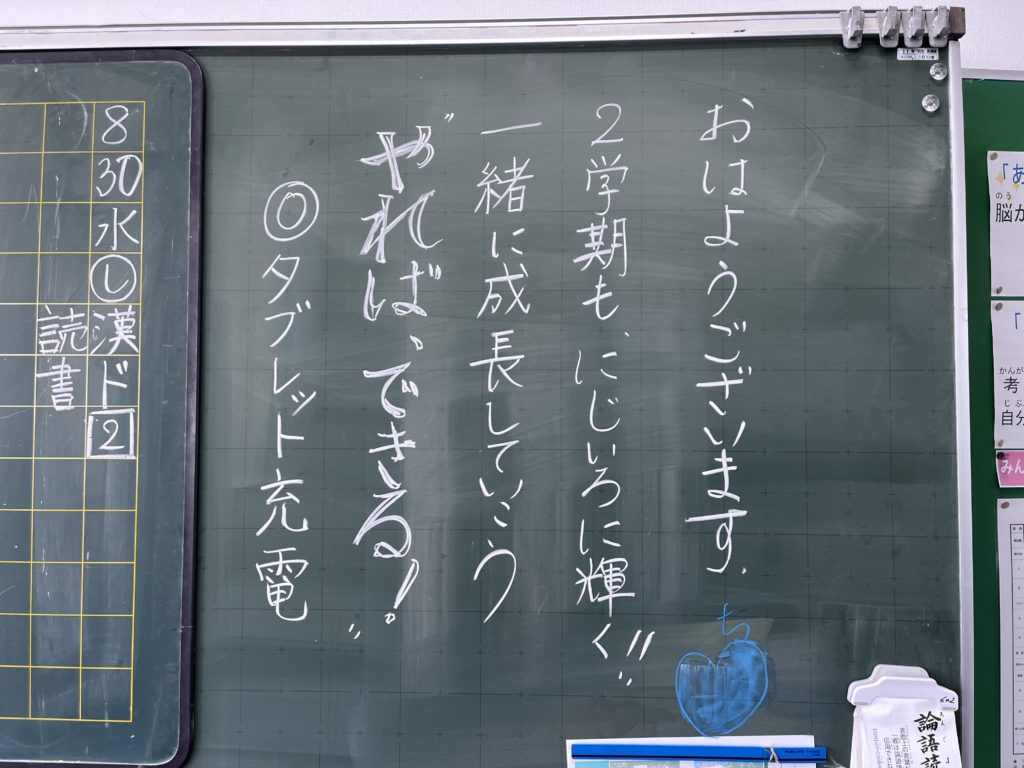 おはようございます.
2学期も、にじいろに輝く!!
一緒に成長していこう
"やれば、できる!"
◎タブレット充電
ち
8 30 水 し 漢ド 2
読書
「あ
脳が
のう
「
考
かんが
自分
じぶ
みん
602
論語読